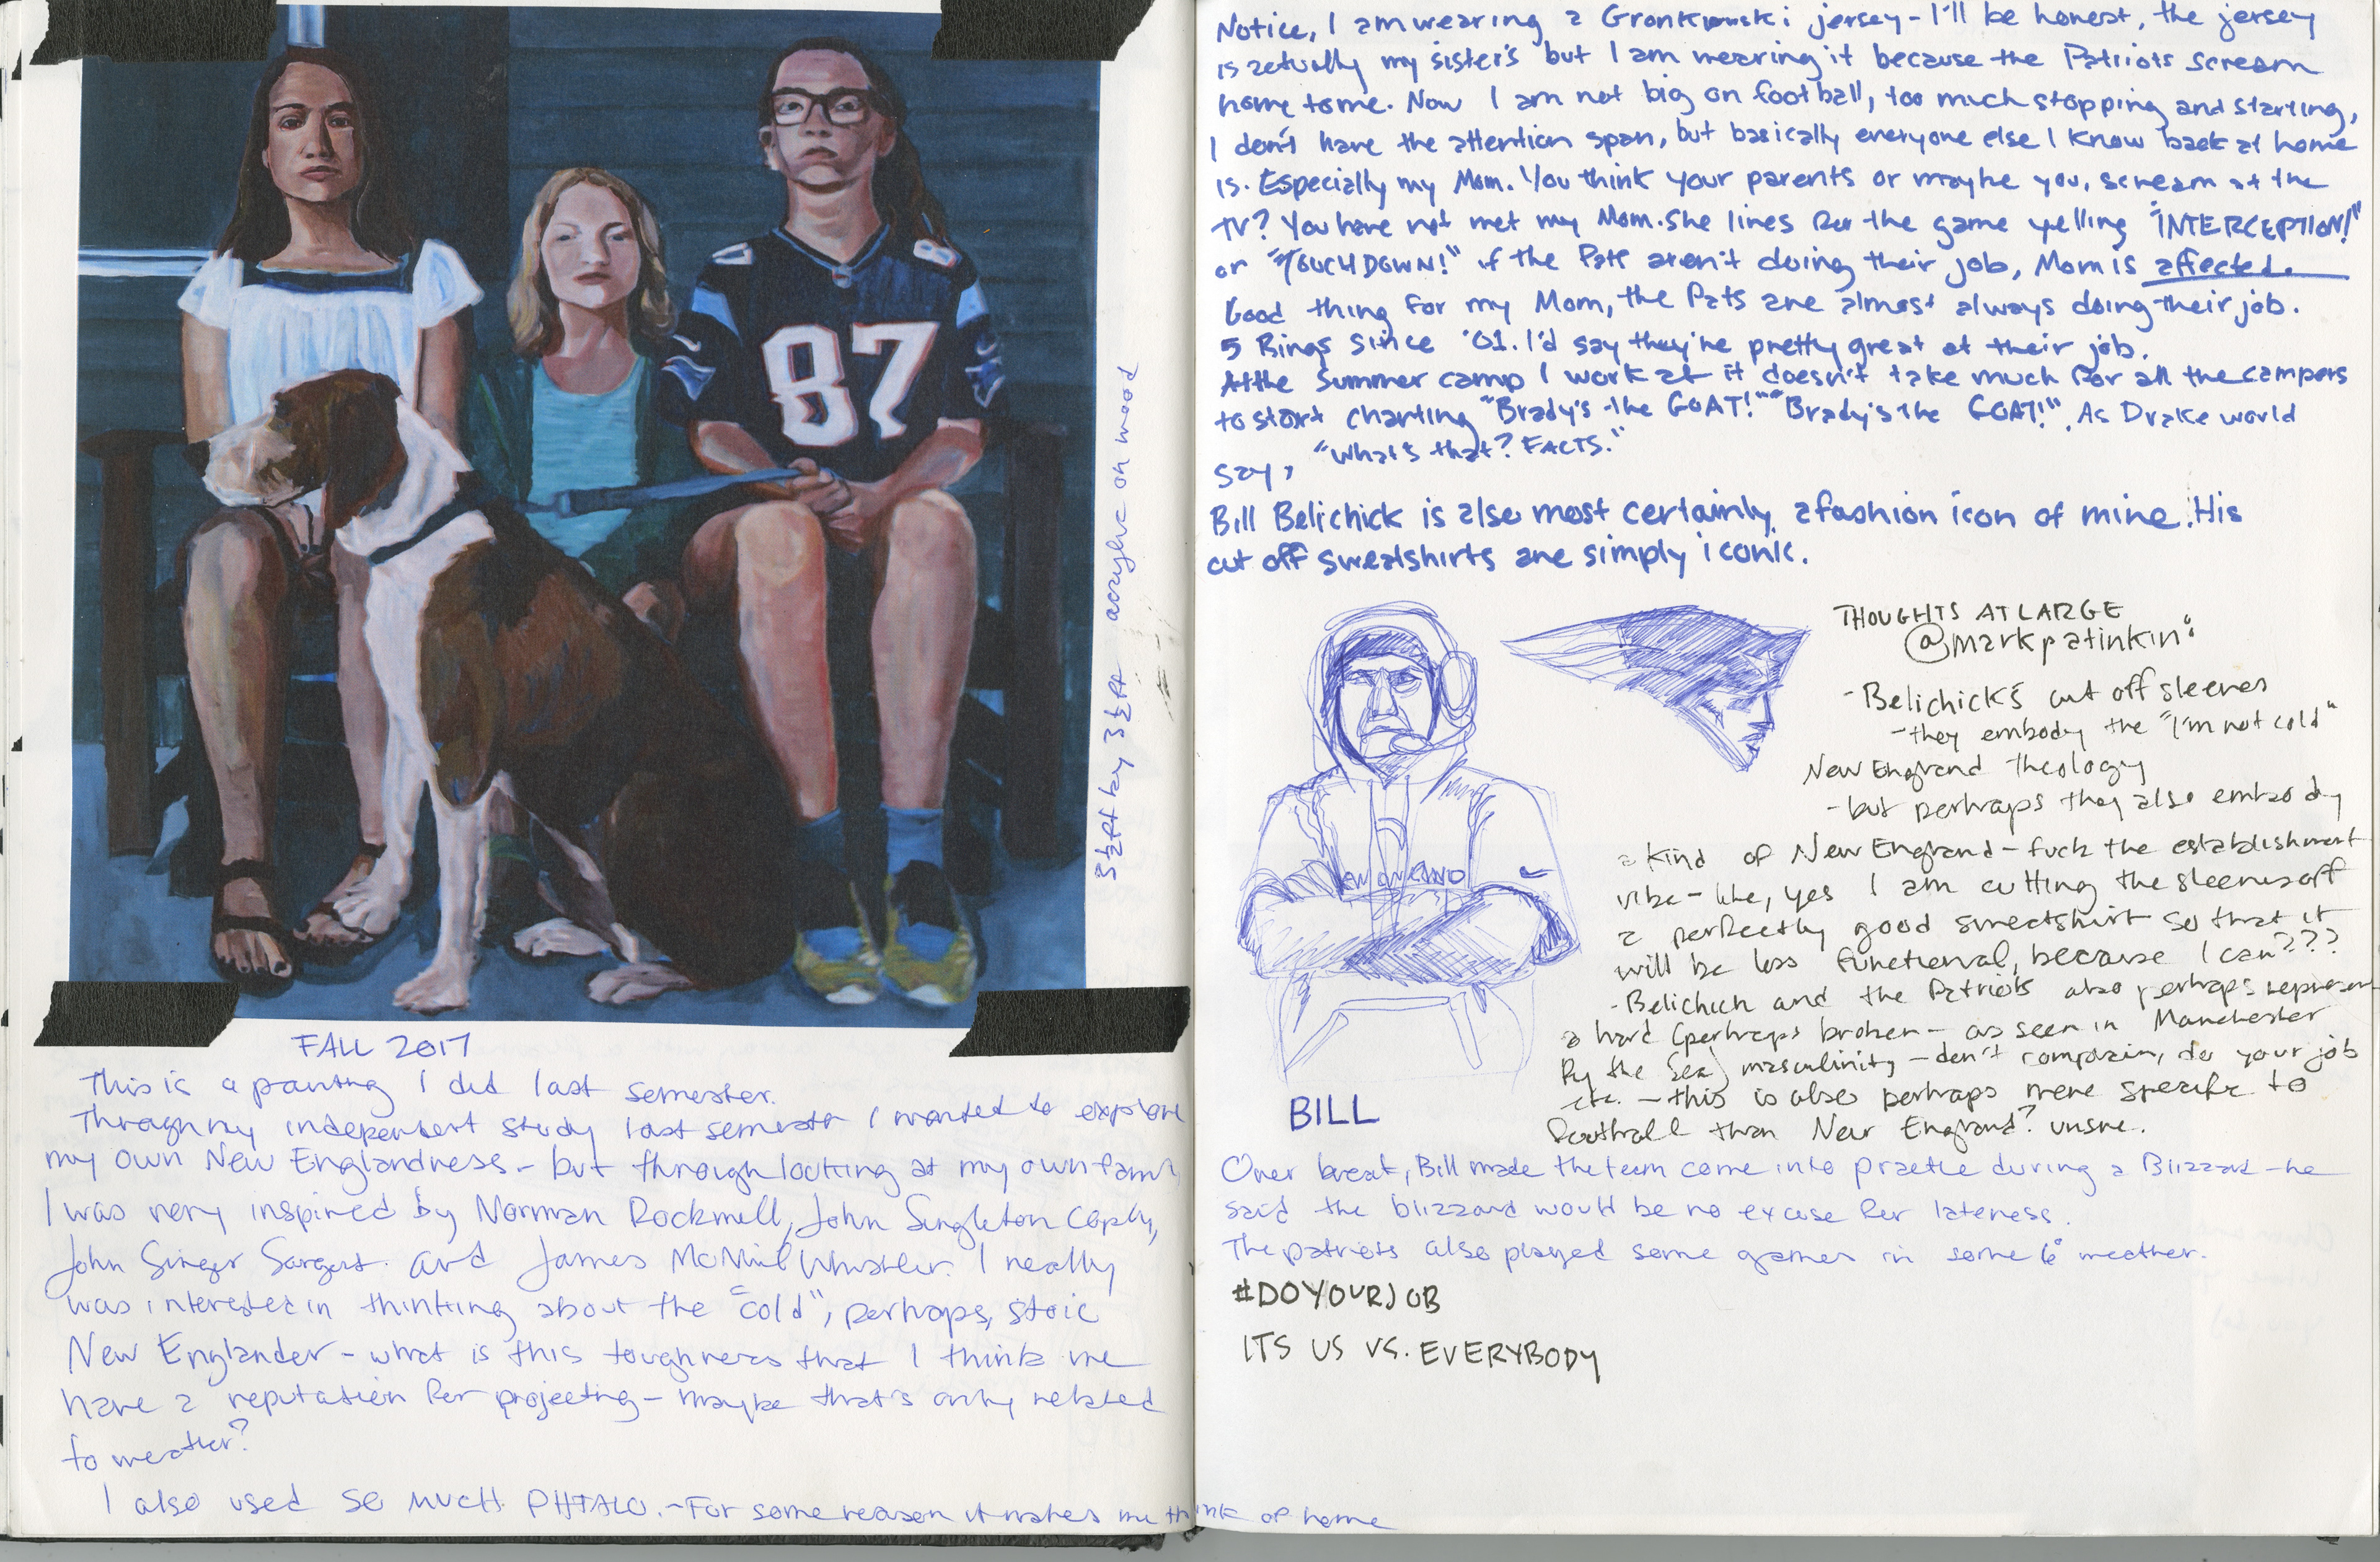 87
3½ft by 3½ft acrylic on wood
FALL 2017
This is a painting I did last semester.
Through my independent study last semester I wanted to explore
my own New Englandness - but through looking at my own family
I was very inspired by Norman Rockwell, John Singleton Coply,
John Singer Sargent. and James McNeil Whistler. I really
was interested in thinking about the "cold", perhaps, stoic
New Englander - what is this toughness that I think we
have a reputation for projecting - maybe that's only related
to weather?
I also used SO MUCH PHTALO. - For some reason it makes me think of home
Notice, I am wearing a Gronkowski jersey - I'll be honest, the jersey
is actually my sister's but I am wearing it because the Patriots scream
home to me. Now I am not big on football, too much stopping and starting,
I don't have the attention span, but basically everyone else I know back at home
is. Especially my Mom. You think your parents or maybe you, scream at the
TV? You have not met my Mom. She lives for the game yelling "INTERCEPTION!"
or "TOUCHDOWN!" if the Pats aren't doing their job, Mom is affected.
Good thing for my Mom, the Pats are almost always doing their job.
5 Rings since '01. I'd say they're pretty great at their job.
At the summer camp I work at it doesn't take much for all the campers
to start chanting "Brady's the GOAT!" "Brady's the GOAT!". As Drake would
say, "What's that? FACTS."
Bill Belichick is also most certainly a fashion icon of mine. His
cut off sweatshirts are simply iconic.
THOUGHTS AT LARGE
@markpatinkin:
- Belichick's cut off sleeves
- they embody the "I'm not cold"
New England theology
- but perhaps they also embody
a kind of New England - fuck the establishment
vibe - like, yes I am cutting the sleeves off
a perfectly good sweatshirt so that it
will be less functional, because I can???
- Belichick and the Patriots also perhaps represent
a hard (perhaps broken - as seen in Manchester
By the Sea) masculinity - don't complain, do your job
etc. - this is also perhaps more specific to
football than New England? unsure.
BILL
Over break, Bill made the team come into practice during a Blizzard - he
said the blizzard would be no excuse for lateness.
The patriots also played some games in some 6° weather.
#DOYOURJOB
ITS US VS. EVERYBODY